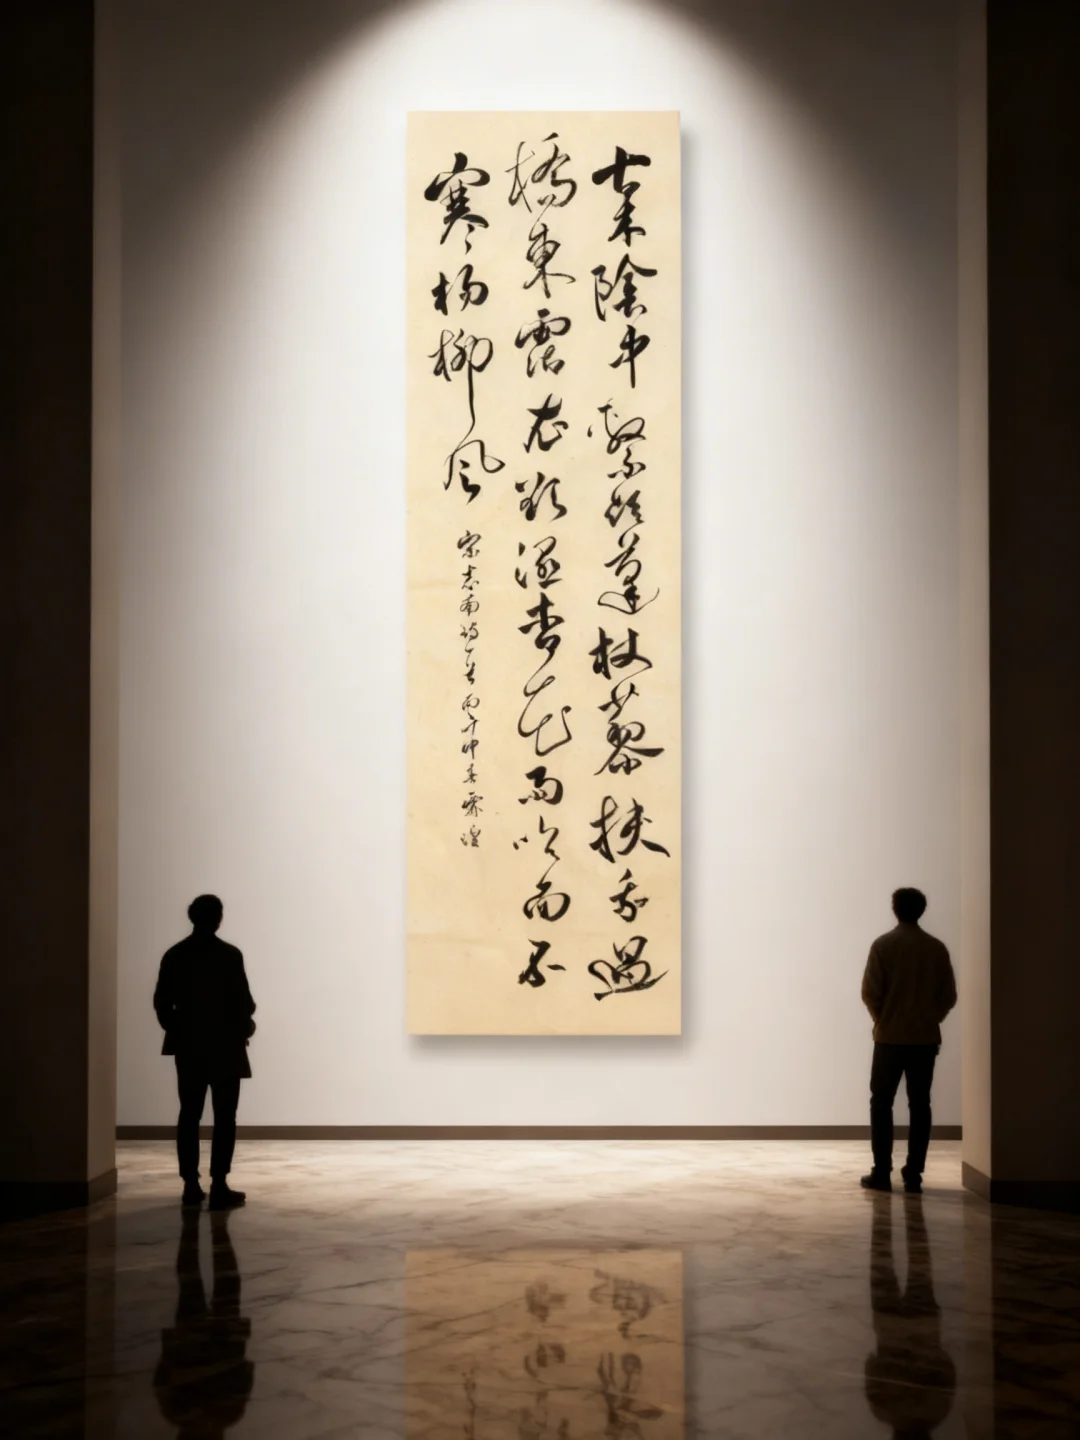 古木陰中繫短蓬杖藜扶我過
橋東霑衣欲濕杏花雨吹面不
寒楊柳風
宋志南詩一首丙午仲春